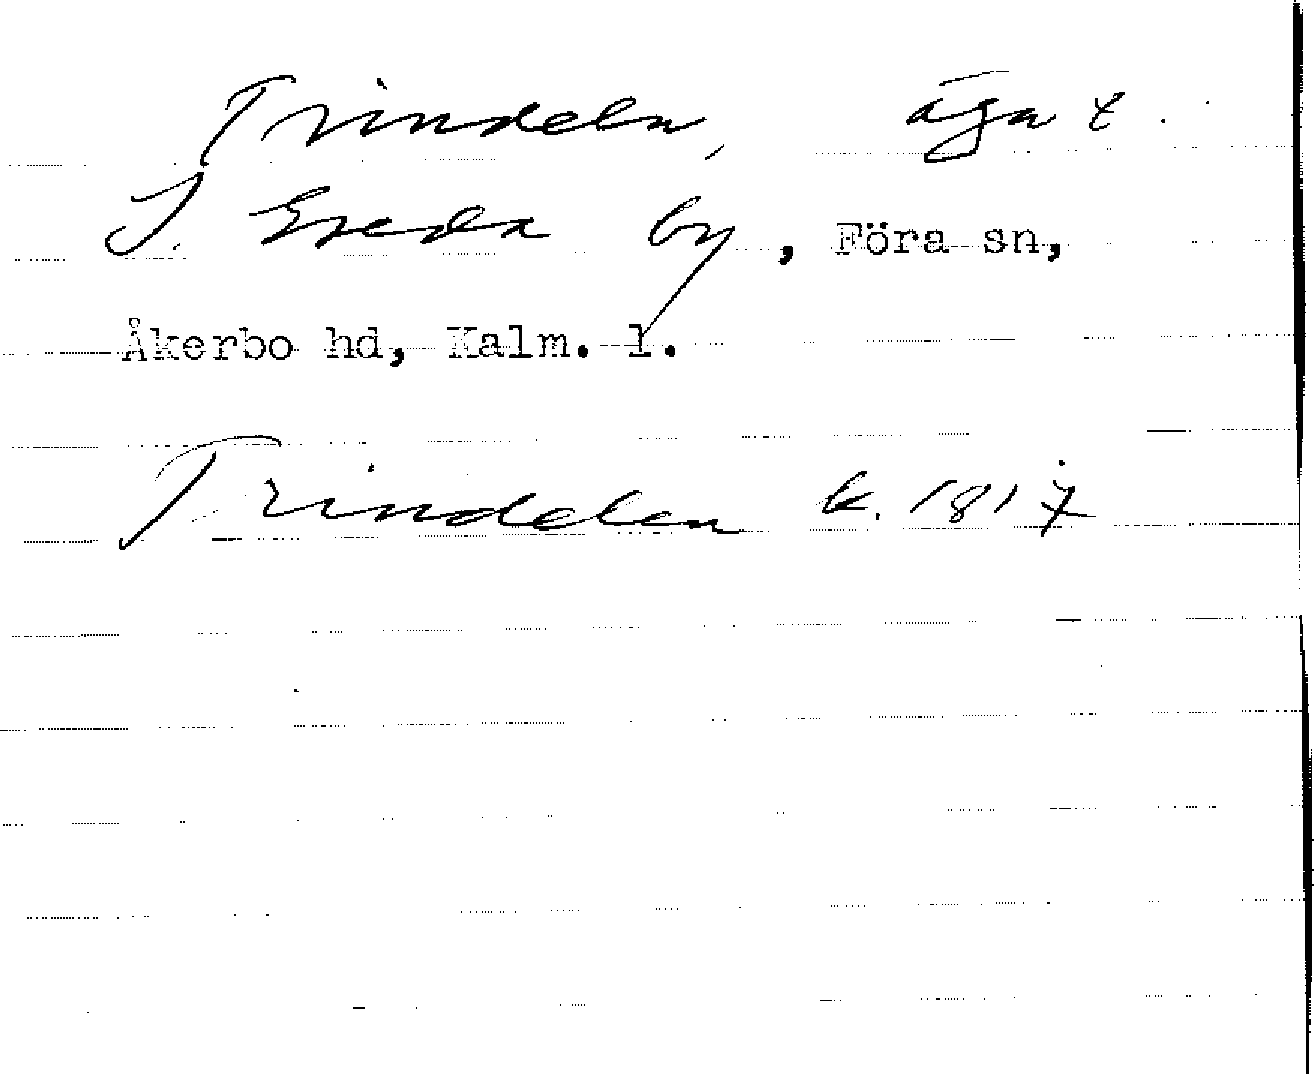 Trindeln, äga t.
S. Greda by, Föra sn,
Åkerbo hd, Kalm. l.
Trindelen k. 1817